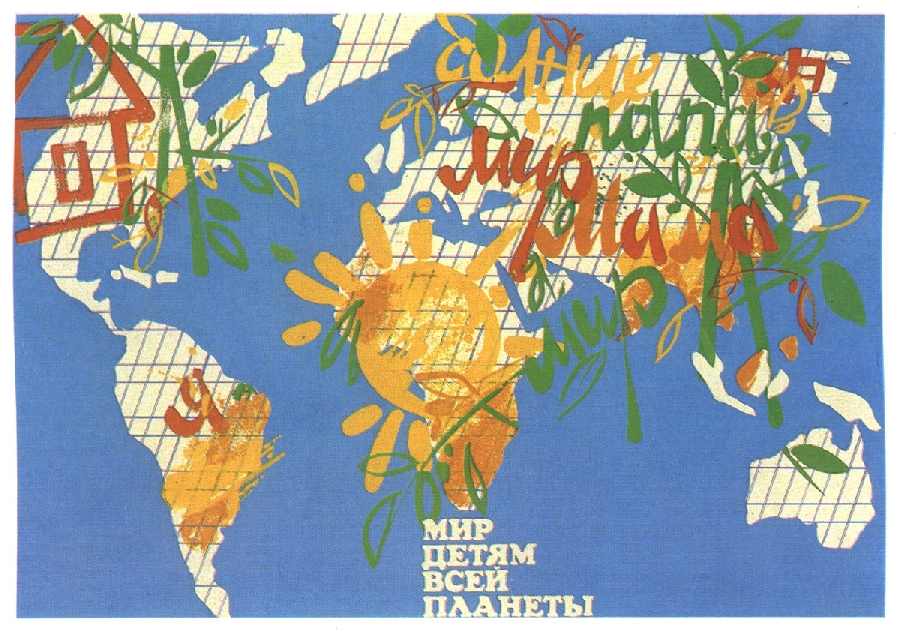 солнце
папа
мир
мама
я
мир
я
Я
МИР
ДЕТЯМ
ВСЕЙ
ПЛАНЕТЫ